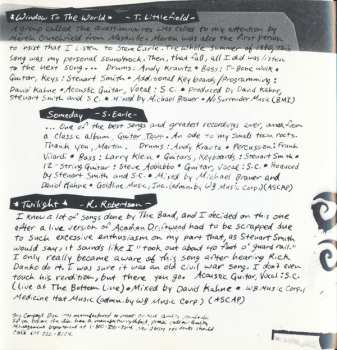 *Window To The World* - T. Littlefield -
A group called The Questionnaires was called to my attention by
Martin Overstfield from Nashville. Martin was also the first person
to insist that I listen to Steve Earle. The whole summer of 1986, this
song was my personal soundtrack. Then, that fall, all I did was listen
to the next song... Drums: Andy Krantz * Bass: T-Bone Wolk *
Guitar, Keys: Stewart Smith * Additional Keyboards/Programming:
David Kahne * Acoustic Guitar, Vocal: S.C. * Produced by David Kahne,
Steuart Smith and S.C. * Mixed by Michael Brauer * No Surrender Music (BMI)
Someday - S. Earle -
... One of the best songs and greatest recordings ever, and from
a classic album, Guitar Town. An ode to my small town roots.
Thank you, Martin. Drums: Andy Krantz * Percussion: Frank
Vilardi * Bass: Larry Klein * Guitars, Keyboards: Steuart Smith *
12-String Guitar: Steve Addabbo * Guitar, Vocal: S.C. * Produced
by Steuart Smith and S.C. * Mixed by Michael Brauer and
David Kahne * Goldline Music, Inc. (admin. by W.B. Music Corp.) (ASCAP)
*Twilight* - R. Robertson -
I know a lot of songs done by The Band, and I decided on this one
after a live version of Acadian Driftwood had to be scrapped due
to such excessive enthusiasm on my part that, as Steuart Smith
would say, it sounds like I "took out about 40 foot o' guard rail."
I only really became aware of this song after hearing Rick
Danko do it. I was sure it was an old Civil War song. I don't even
touch his rendition, but there you go. Acoustic Guitar, Vocal: S.C.
(Live at The Bottom Line) * Mixed by David Kahne * W.B. Music Corp./
Medicine Hat Music (admin. by W.B. Music Corp.) (ASCAP)